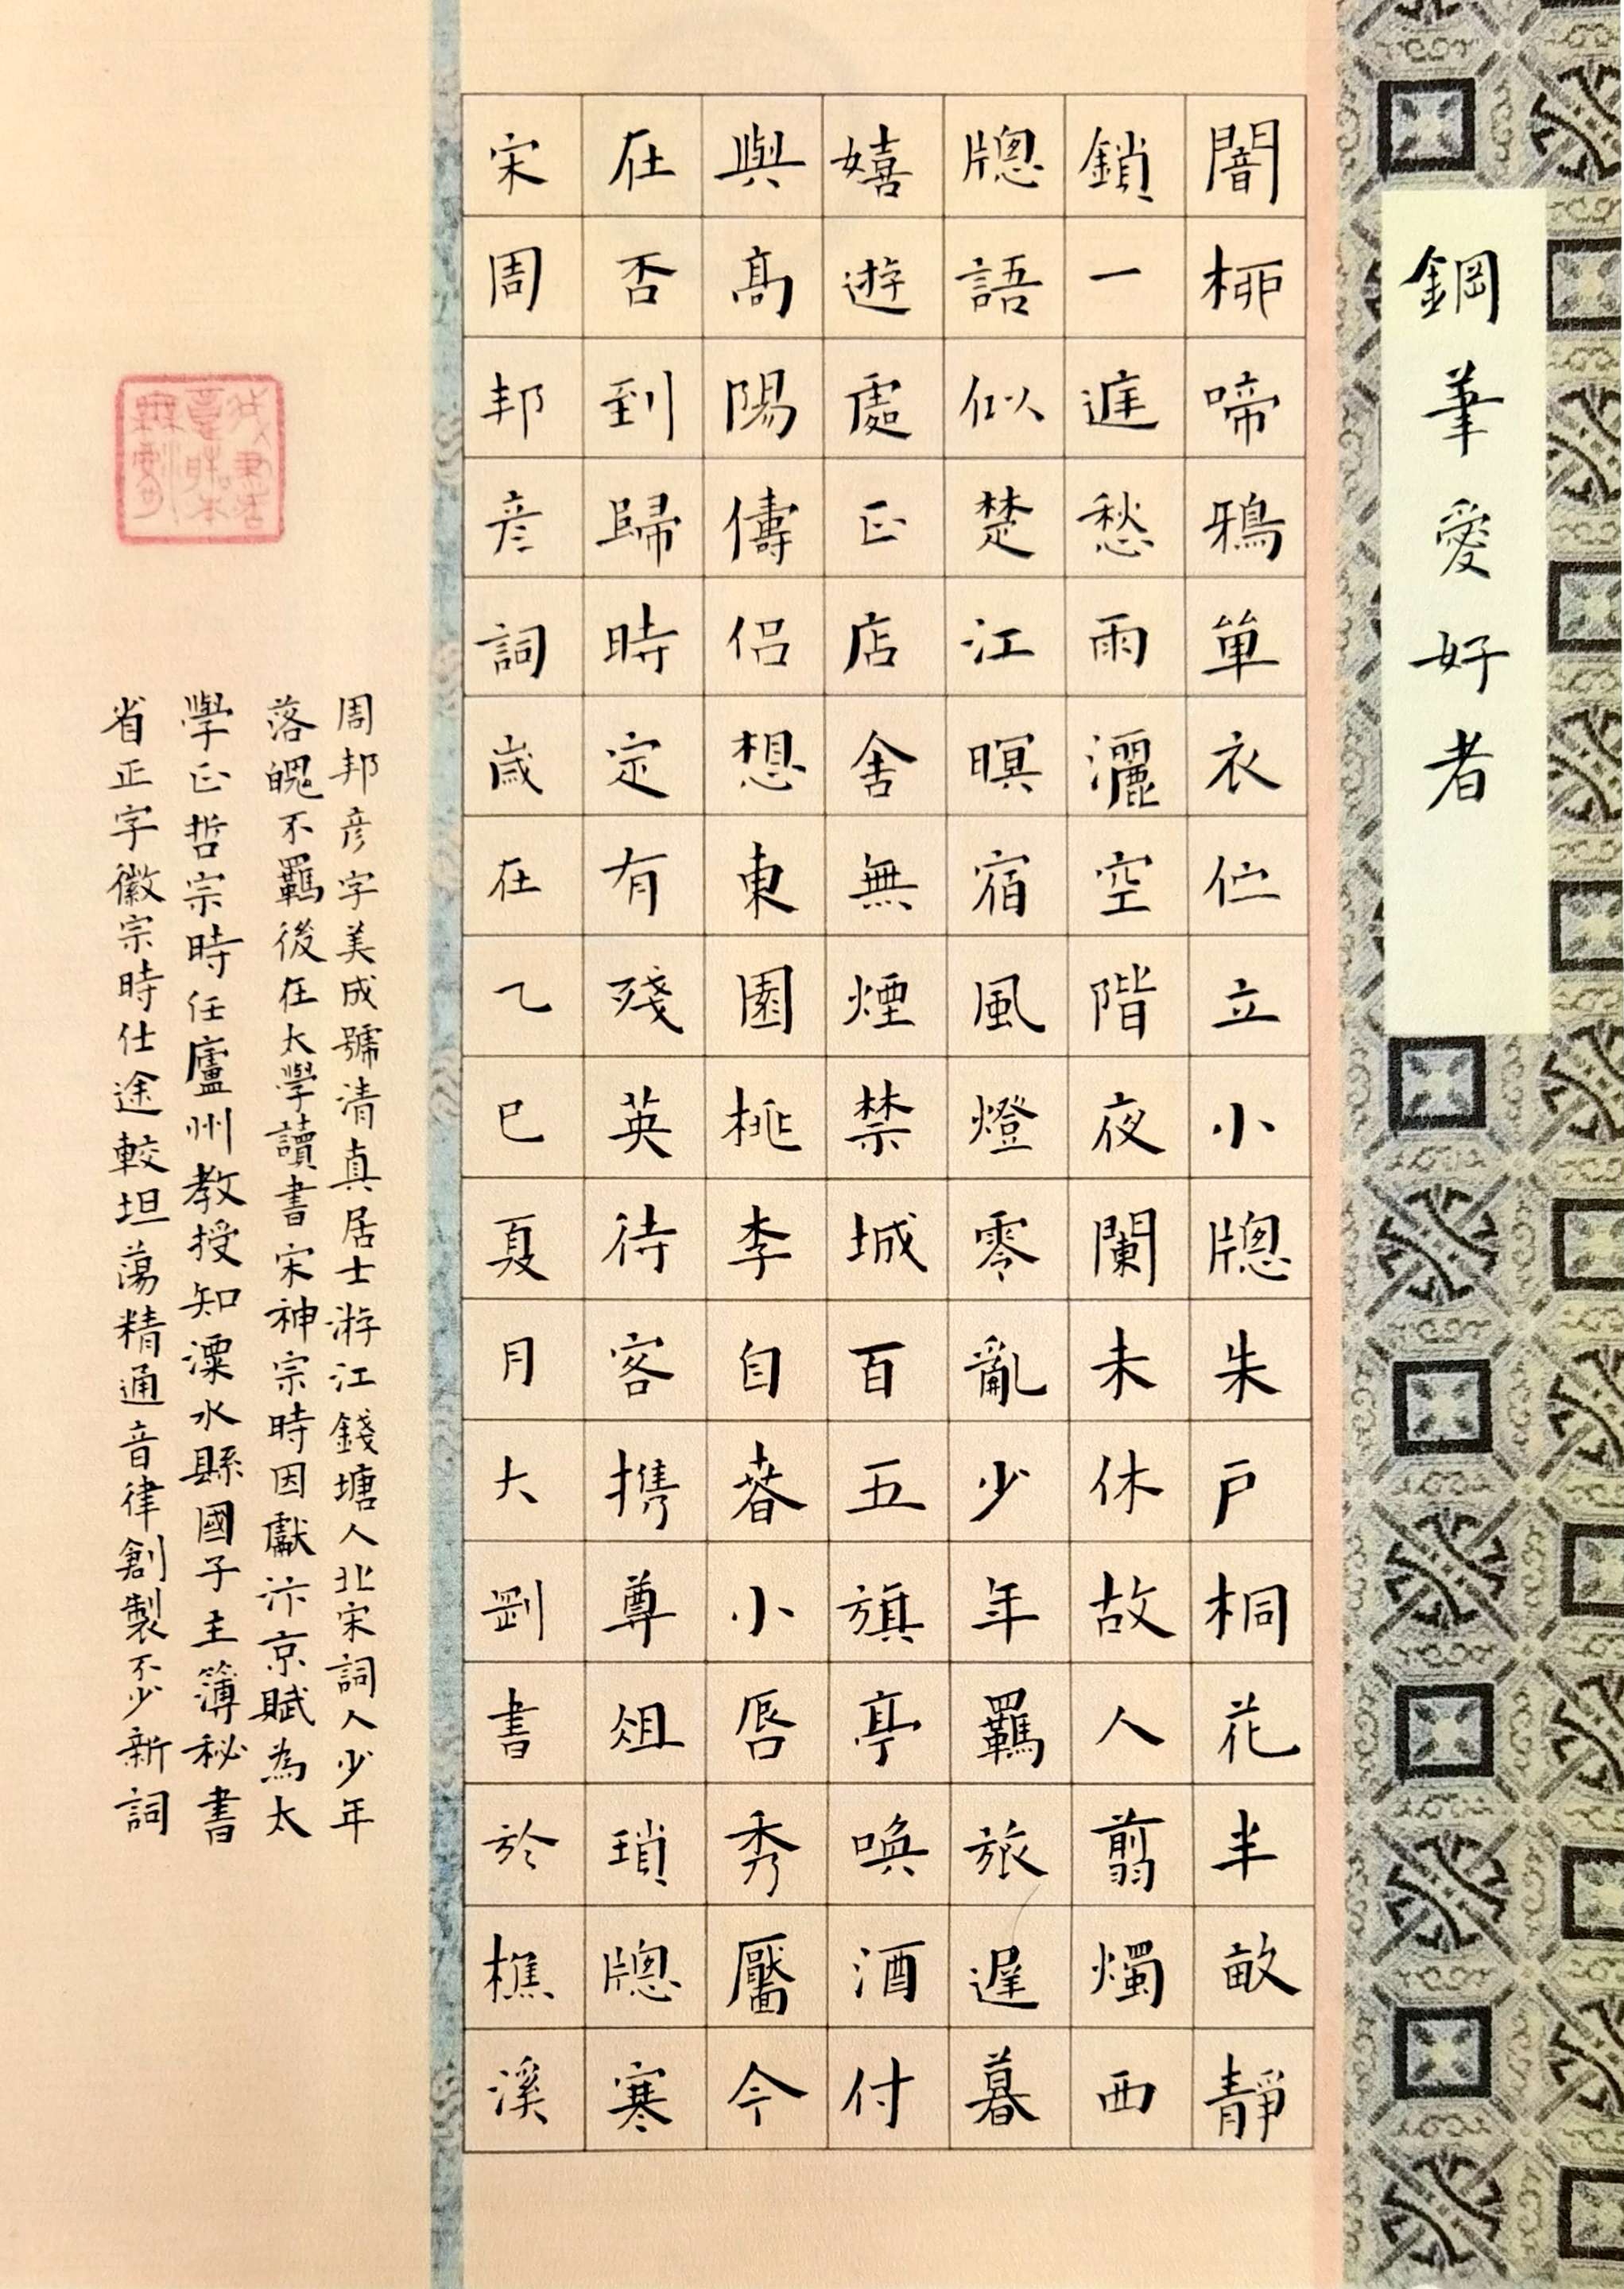 鋼筆愛好者
闇桺啼鴉單衣伫立小牕朱戶桐花半畝靜
鎖一庭愁雨灑空階夜闌未休故人翦燭西
牕語似楚江暝宿風燈零亂少年羈旅遲暮
嬉遊處正店舍無煙禁城百五旗亭喚酒付
與高陽儔侶想東園桃李自春小唇秀靨今
在否到歸時定有殘英待客携尊俎瑣牕寒
宋周邦彥詞歲在乙巳夏月大剛書於樵溪
周邦彥字美成號清真居士游江錢塘人北宋詞人少年
落魄不羈後在太學讀書宋神宗時因獻汴京賦為太
學正哲宗時任廬州教授知溧水縣國子主簿秘書
省正字徽宗時仕途較坦蕩精通音律創製不少新詞